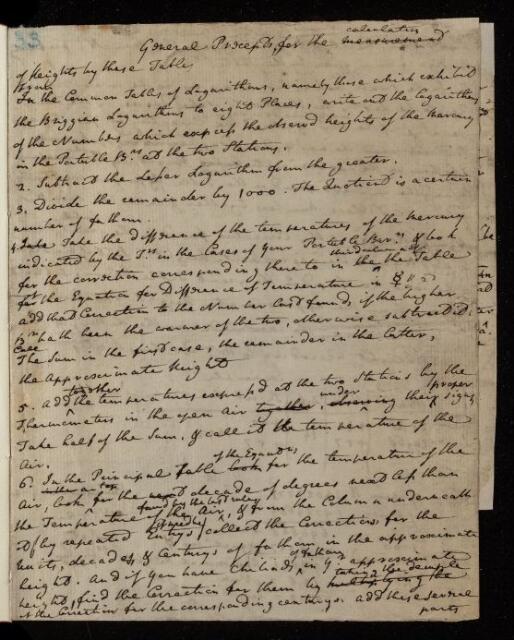 33
General Precepts for the calculation measurement
of Heights by these Table
In the Common Tables of Logarithms, namely those which exhibit
the Briggian Logarithms to eight Places, write out the Logarithms
of the Numbers which express the observed heights of the Mercury
in the Portable Brs at the two Stations.
2. Subtract the lesser Logarithm from the greater.
3. Divide the remainder by 1000. The Quotient is a certain
number of fathom.
4. Take the difference of the temperatures of the Mercury
indicated by the Trs in the Cases of your Portable Barrs & look
for the correction corresponding there to in the Table
for the Equation for Difference of Temperature in
add that Correction to the Number last found, if the higher
Br hath been the warmer of the two, otherwise subtract it:
Call The Sum in the first case, the remainder in the latter,
the Approximate Height
5. add together the temperatures expressed at the two Stations by the
Thermometers in the open Air together, under their proper signs
Take half of the Sum, & call it the temperature of the
Air.
6. In the Principal Table of the Equation look for the temperature of the
Air, look for the decade of degrees next less than
the Temperature of the Air, & from the Column underneath
it by repeated Entrys collect the Corrections for the
units, decades, & Centurys of fathom in the approximate
height. And if you have Chiliads of fathoms in ye approximate
height, find the Correction for them by taking the decuple multiplying the
of the Correction for the corresponding centurys. add these several
parts